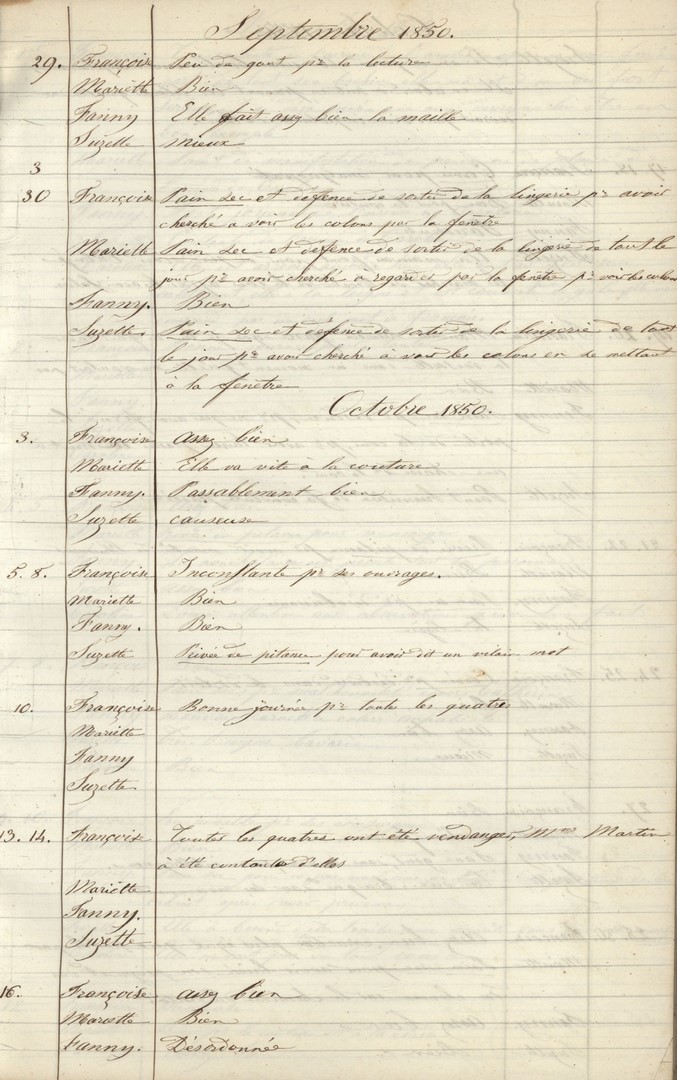 Septembre 1850.
29. Françoise Peu de gout pr la lecture
Mariette Bien
Fanny Elle fait assez bien la maille
Suzette mieux
3
30 Françoise Pain sec et deffence de sortir de la lingerie pr avoir
cherché a voir les colons par la fenetre
Mariette Pain sec et deffence de sortir de la lingerie de tout le
jour pr avoir cherché a regarder par la fenetre pr voir les colons
Fanny. Bien
Suzette. Pain sec et deffence de sortir de la lingerie de tout
le jour pr avoir cherché à voir les colons en se mettant
à la fenetre
Octobre 1850.
3. Françoise assez bien
Mariette Elle va vite à la couture
Fanny. Passablement bien
Suzette causeuse
5. 8. Françoise Inconstante pr ses ouvrages.
Mariette Bien
Fanny. Bien
Suzette Privée de pitance pour avoir dit un vilain mot
10. Françoise Bonne journée pr toutes les quatres
Mariette
Fanny
Suzette
13. 14. Françoise Toutes les quatres ont été vendanger, Mme Martin
à été contente d'elles
Mariette
Fanny.
Suzette
16. Françoise assez bien
Mariette Bien
Fanny. Désordonnée